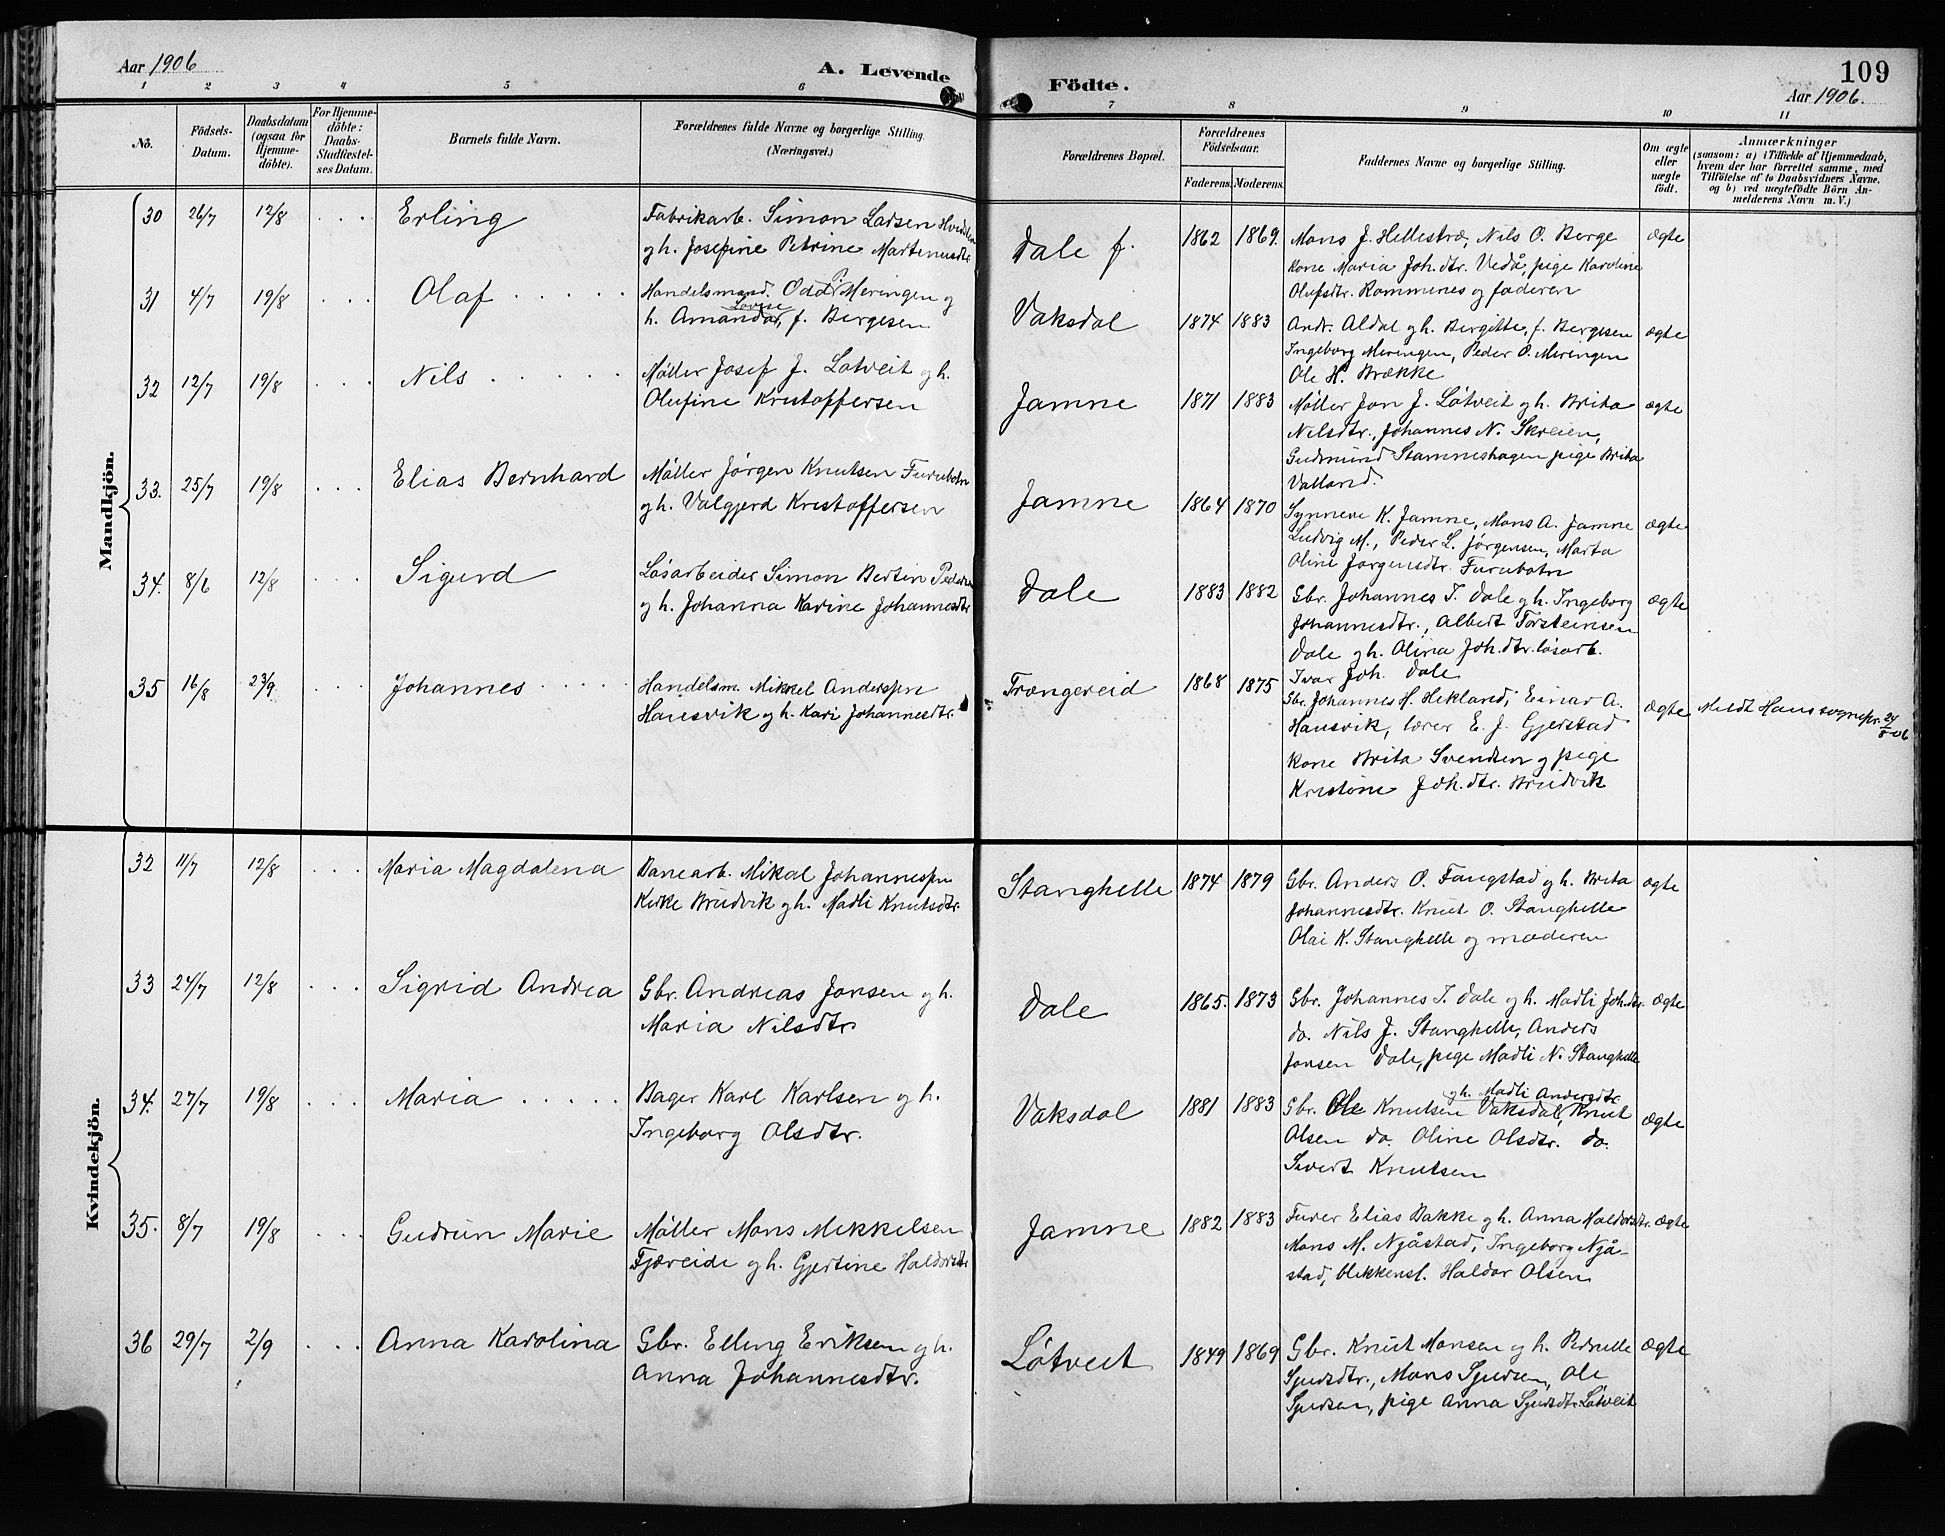 Aar 1906
A. Levende
Födte.
109
Aar 1906.
1 2 3 4 5 6 7 8 9 10 11
No.
Födsels-
Datum.
Daabsdatum
(ogsaa for
Hjemme-
döbte).
For Hjemme-
döbte:
Daabs-
Stadfæstel-
ses Datum.
Barnets fulde Navn.
Forældrenes fulde Navne og borgerlige Stilling.
(Næringsvei.)
Forældrenes Bopæl.
Forældrenes
Födselsaar.
Faderens. Moderens.
Faddernes Navne og borgerlige Stilling.
Om ægte
eller
uægte
födt.
Anmærkninger
(saasom: a) i Tilfælde af Hjemmedaab,
hvem der har forrettet samme, med
Tilföielse af to Daabsvidners Navne.
og b) ved uægtefödte Börn An-
melderens Navn m. V.)
Mandkjön.
30 26/7 12/8 . . . Erling
Fabrikarb. Simon Larsen
og h. Josefine Petrine Martinusdtr.
Dale f. 1862 1869.
Mons J. Hellestræ, Nils O. Berge
Kone Maria Joh.dtr. Vedå, pige Karoline
Olufsdtr. Rommenes og faderen
ægte
31 4/7 19/8 . . . Olaf . . . . .
Handelsmand. Odd P. Meringen og
h. Amanda Lovise, f. Bergesen
Vaksdal 1874 1883
Andr. Aldal og h. Bergitte, f. Bergesen
Ingeborg Meringen, Peder O. Meringen
Ole H. Brække
ægte
32 12/7 19/8 . . . Nils . . . . .
Møller Josef J. Løtveit og h.
Olufine Kristoffersen
Jamne 1871 1883
Møller Jon J. Løtveit og h. Brita
Nilsdtr., Johannes N. Skreien,
Gudmund Stamneshagen pige Brita
Valland.
ægte
33. 25/7 19/8 . . . Elias Bernhard
Møller Jørgen Knutsen Furubotn
og h. Valgjerd Kristoffersen
Jamne 1864 1870
Synneve K. Jamne, Mons A. Jamne
Ludvig M., Peder L. Jørgensen, Marta
Oline Jørgensdtr. Furubotn
ægte
34. 8/6 12/8 . . . Sigurd
Løsarbeider Simon Bertin Pedersen
og h. Johanna Karine Johannesdtr
Dale 1883 1882
Gbr. Johannes T. Dale og h. Ingeborg
Johannesdtr., Albert Torsteinsen
Dale og h. Olina Joh.dtr. løsarb.
Ivar Joh. Dale
ægte
35 16/8 23/9 . . . Johannes . . . . .
Handelsm. Mikkel Anderssen
Hausvik og h. Kari Johannesdtr.
Trængereid 1868 1875
Gbr. Johannes H. Hekland, Einar A.
Hausvik, lærer E. J. Gjerstad
kone Brita Svendsen og pige
Kristine Joh.dtr. Bruvik
ægte
Meldt Haus sognepr. 24/8 06
Kvindekjön.
32 11/7 12/8 . . . Maria Magdalena
Banearb. Mikal Johannessen
Kirke Bruvik og h. Madli Knutsdtr.
Stanghelle 1874 1879
Gbr. Anders O. Fangstad og h. Brita
Johannesdtr. Knut O. Stanghelle
Olai K. Stanghelle og moderen
ægte
33 24/7 12/8 . . . Sigrid Andrea
Gbr. Andreas Jonsen og h.
Maria Nilsdtr
Dale 1865. 1873
Gbr. Johannes T. Dale og h. Madli Joh.dtr.
do. Nils J. Stanghelle, Anders
Jonsen Dale, pige Madli N. Stanghelle
ægte
34. 27/7 19/8 . . . Maria . . . . .
Bager Karl Karlsen og h.
Ingeborg Olsdtr.
Vaksdal 1881 1883
og h. Madli Andersdtr.
Gbr. Ole Knutsen Vaksdal, Knut
Olsen do. Oline Olsdtr. do.
Sivert Knutsen
ægte
35. 8/7 19/8 . . . Gudrun Marie
Møller Mons Mikkelsen
Fjæreide og h. Gjertine Haldorsdtr
Jamne 1882 1883
Furer Elias Bakke og h. Anna Haldorsdtr.
Mons M. Njåstad, Ingeborg Njå-
stad, blikkensl. Haldor Olsen
ægte
36 29/7 2/9 . . . Anna Karolina
Gbr. Elling Eriksen og h.
Anna Johannesdtr.
Løtveit 1849 1869
Gbr. Knut Monsen og h. Pernille
Sjursdtr., Mons Sjursen, Ole
Sjursen, pige Anna Sjursdtr. Løtveit
ægte